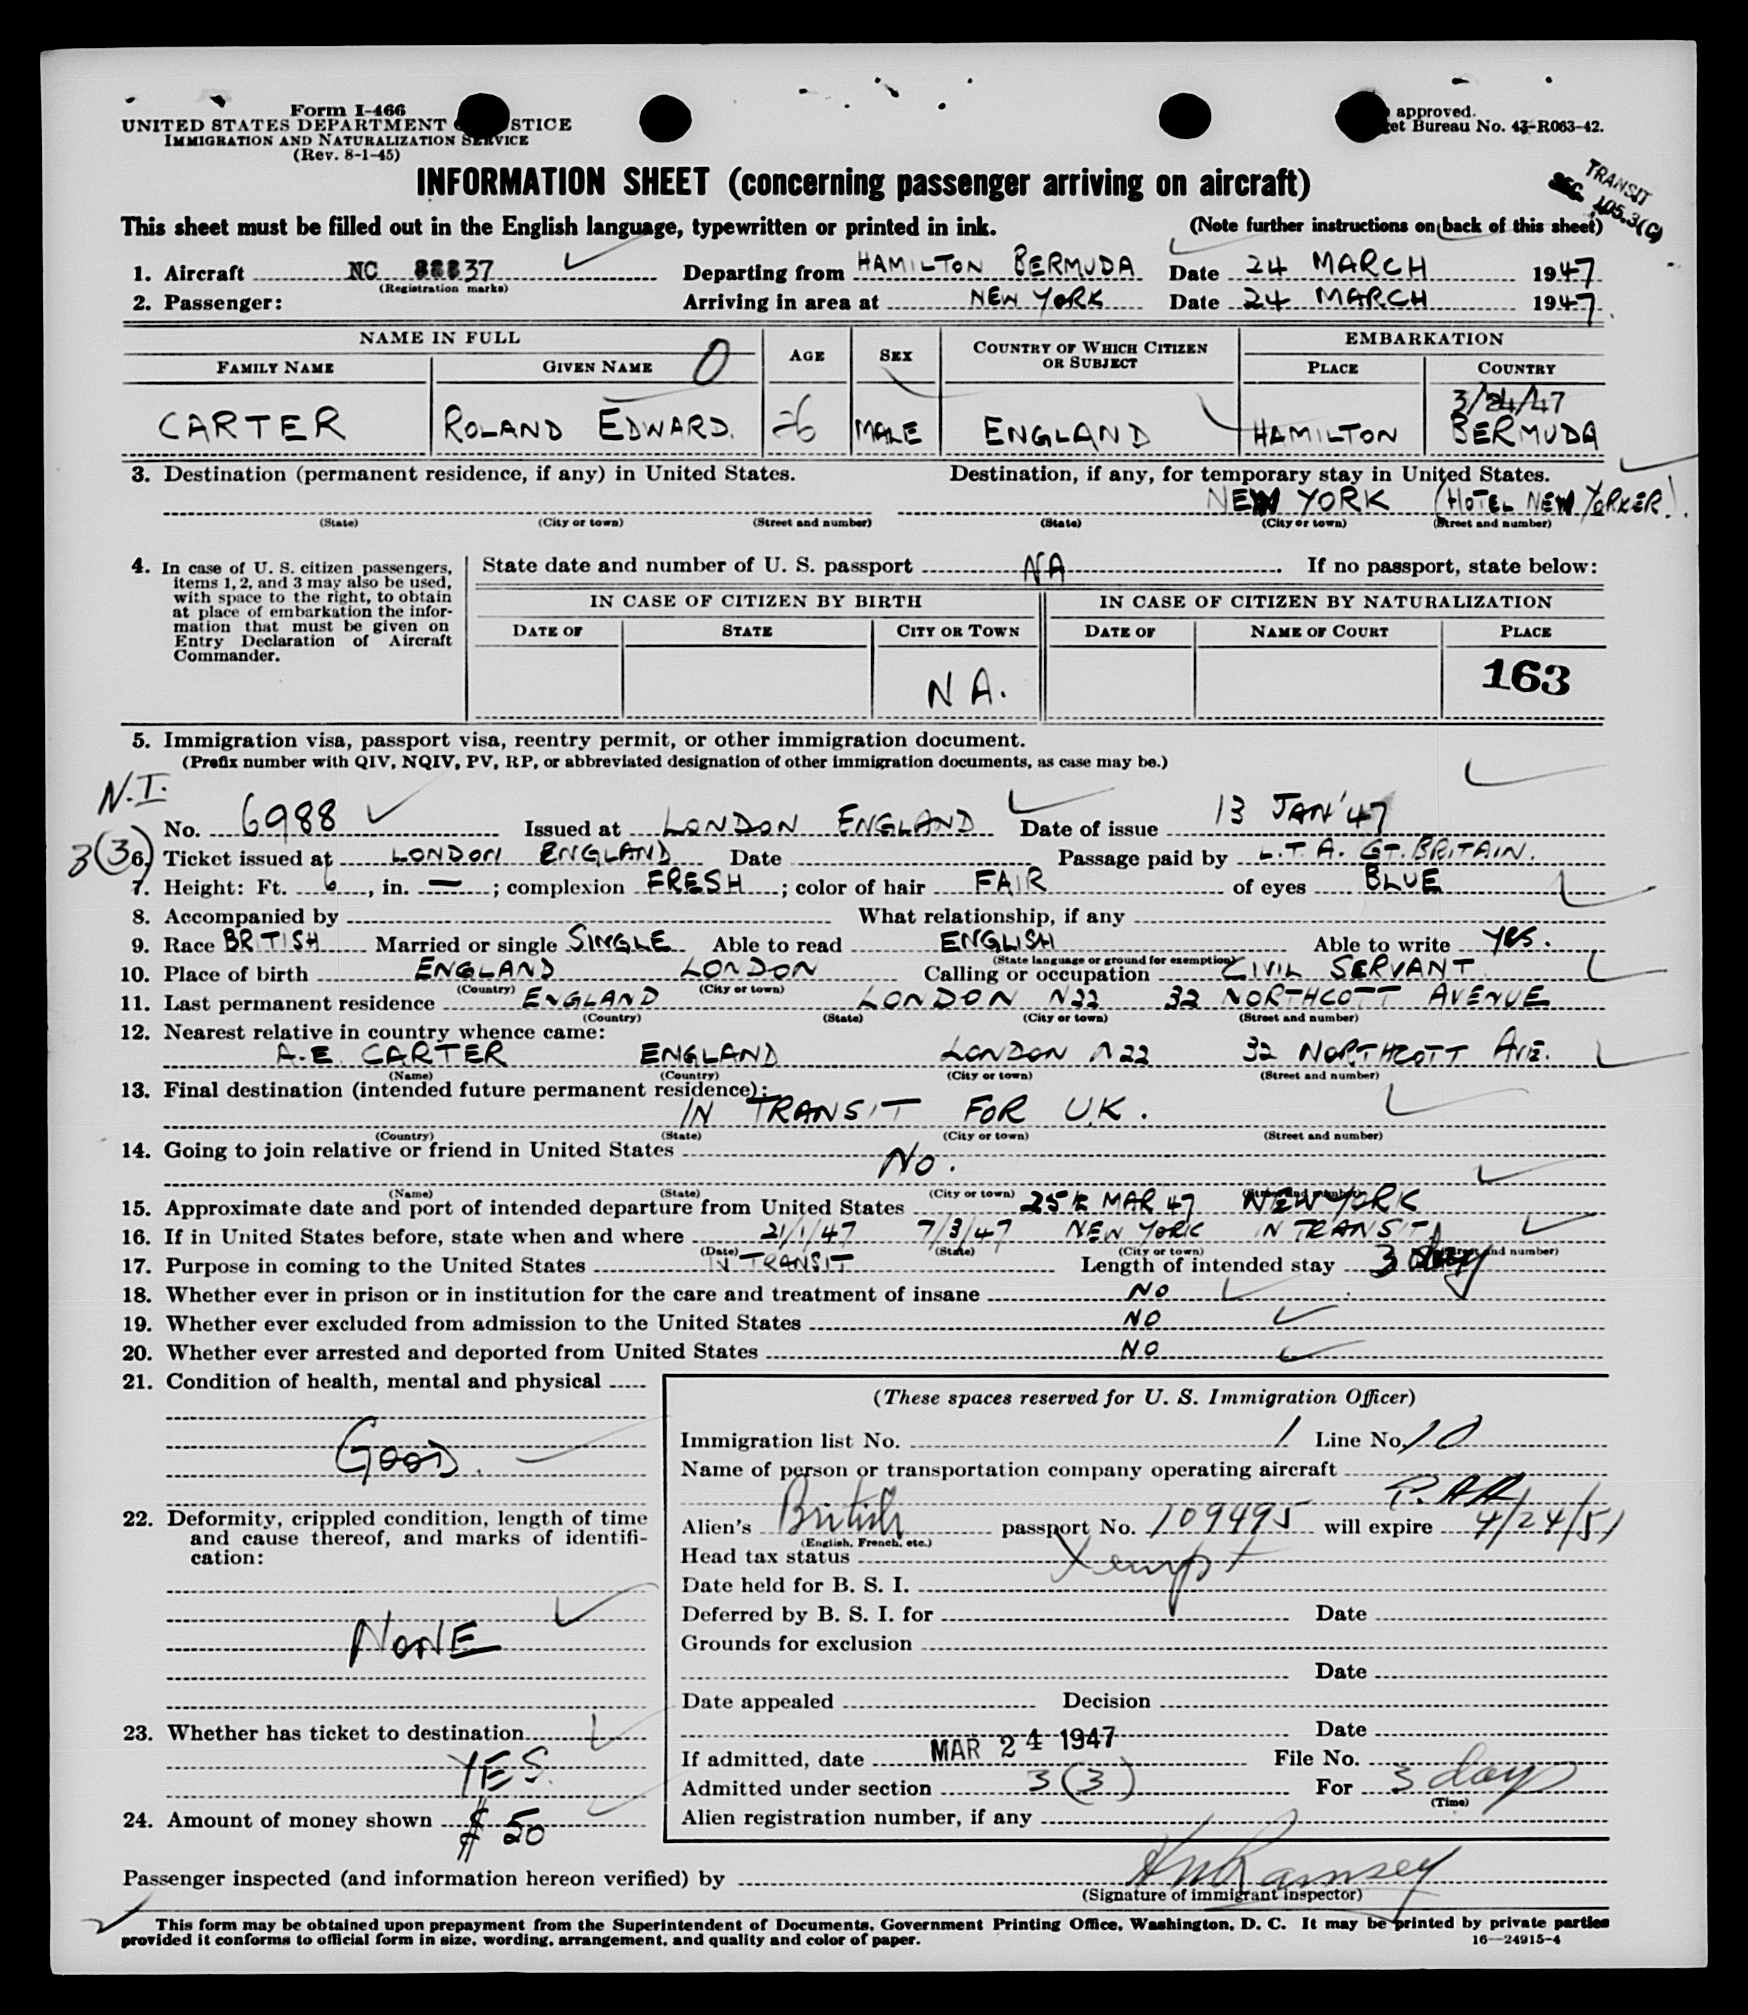 Form I-466
UNITED STATES DEPARTMENT STICE
IMMIGRATION AND NATURALIZATION SERVICE
(Rev. 8-1-45)
approved.
et Bureau No. 43-R063-42.
TRANSIT
SEC. 105.3(C)
INFORMATION SHEET (concerning passenger arriving on aircraft)
This sheet must be filled out in the English language, typewritten or printed in ink. (Note further instructions on back of this sheet)
1. Aircraft NC 88837 Departing from HAMILTON BERMUDA Date 24 MARCH 1947
(Registration marks)
2. Passenger: Arriving in area at NEW YORK Date 24 MARCH 1947.
NAME IN FULL AGE SEX COUNTRY OF WHICH CITIZEN OR SUBJECT EMBARKATION
FAMILY NAME GIVEN NAME O PLACE COUNTRY
3/24/47
CARTER ROLAND EDWARD. 26 MALE ENGLAND HAMILTON BERMUDA
3. Destination (permanent residence, if any) in United States. Destination, if any, for temporary stay in United States.
NEW YORK (HOTEL NEW YORKER).
(State) (City or town) (Street and number) (State) (City or town) (Street and number)
4. In case of U. S. citizen passengers, items 1, 2, and 3 may also be used, with space to the right, to obtain at place of embarkation the information that must be given on Entry Declaration of Aircraft Commander.
State date and number of U. S. passport NA. If no passport, state below:
IN CASE OF CITIZEN BY BIRTH IN CASE OF CITIZEN BY NATURALIZATION
DATE OF STATE CITY OR TOWN DATE OF NAME OF COURT PLACE
N A. 163
5. Immigration visa, passport visa, reentry permit, or other immigration document.
(Prefix number with QIV, NQIV, PV, RP, or abbreviated designation of other immigration documents, as case may be.)
N.I.
No. 6988 Issued at LONDON ENGLAND Date of issue 13 JAN '47
3(3)
6. Ticket issued at LONDON ENGLAND Date Passage paid by L.T.A. GT. BRITAIN.
7. Height: Ft. 6, in. —; complexion FRESH; color of hair FAIR of eyes BLUE
8. Accompanied by What relationship, if any
9. Race BRITISH Married or single SINGLE Able to read ENGLISH Able to write YES.
(State language or ground for exemption)
10. Place of birth ENGLAND LONDON Calling or occupation CIVIL SERVANT
(Country) (City or town)
11. Last permanent residence ENGLAND LONDON N22 32 NORTHCOTT AVENUE
(Country) (State) (City or town) (Street and number)
12. Nearest relative in country whence came:
A.E. CARTER ENGLAND LONDON N22 32 NORTHCOTT AVE.
(Name) (Country) (City or town) (Street and number)
13. Final destination (intended future permanent residence):
IN TRANSIT FOR U.K.
(Country) (State) (City or town) (Street and number)
14. Going to join relative or friend in United States NO.
(Name) (State) (City or town) (Street and number)
15. Approximate date and port of intended departure from United States 25th MAR 47 NEW YORK
16. If in United States before, state when and where 21/1/47 7/3/47 NEW YORK IN TRANSIT
(Date) (State) (City or town) (Street and number)
17. Purpose in coming to the United States IN TRANSIT Length of intended stay 3 day
18. Whether ever in prison or in institution for the care and treatment of insane NO
19. Whether ever excluded from admission to the United States NO
20. Whether ever arrested and deported from United States NO
21. Condition of health, mental and physical
GOOD.
22. Deformity, crippled condition, length of time and cause thereof, and marks of identification:
NONE
23. Whether has ticket to destination
YES.
24. Amount of money shown $ 50
(These spaces reserved for U. S. Immigration Officer)
Immigration list No. 1 Line No. 10
Name of person or transportation company operating aircraft
P.AA
Alien's British passport No. 109495 will expire 4/24/51
(English, French, etc.)
Head tax status Xempt
Date held for B. S. I.
Deferred by B. S. I. for Date
Grounds for exclusion
Date
Date appealed Decision
Date
If admitted, date MAR 24 1947 File No.
Admitted under section 3(3) For 3 days
(Time)
Alien registration number, if any
Passenger inspected (and information hereon verified) by Ramsey
(Signature of immigrant inspector)
This form may be obtained upon prepayment from the Superintendent of Documents, Government Printing Office, Washington, D. C. It may be printed by private parties
provided it conforms to official form in size, wording, arrangement, and quality and color of paper.
16—24915-4